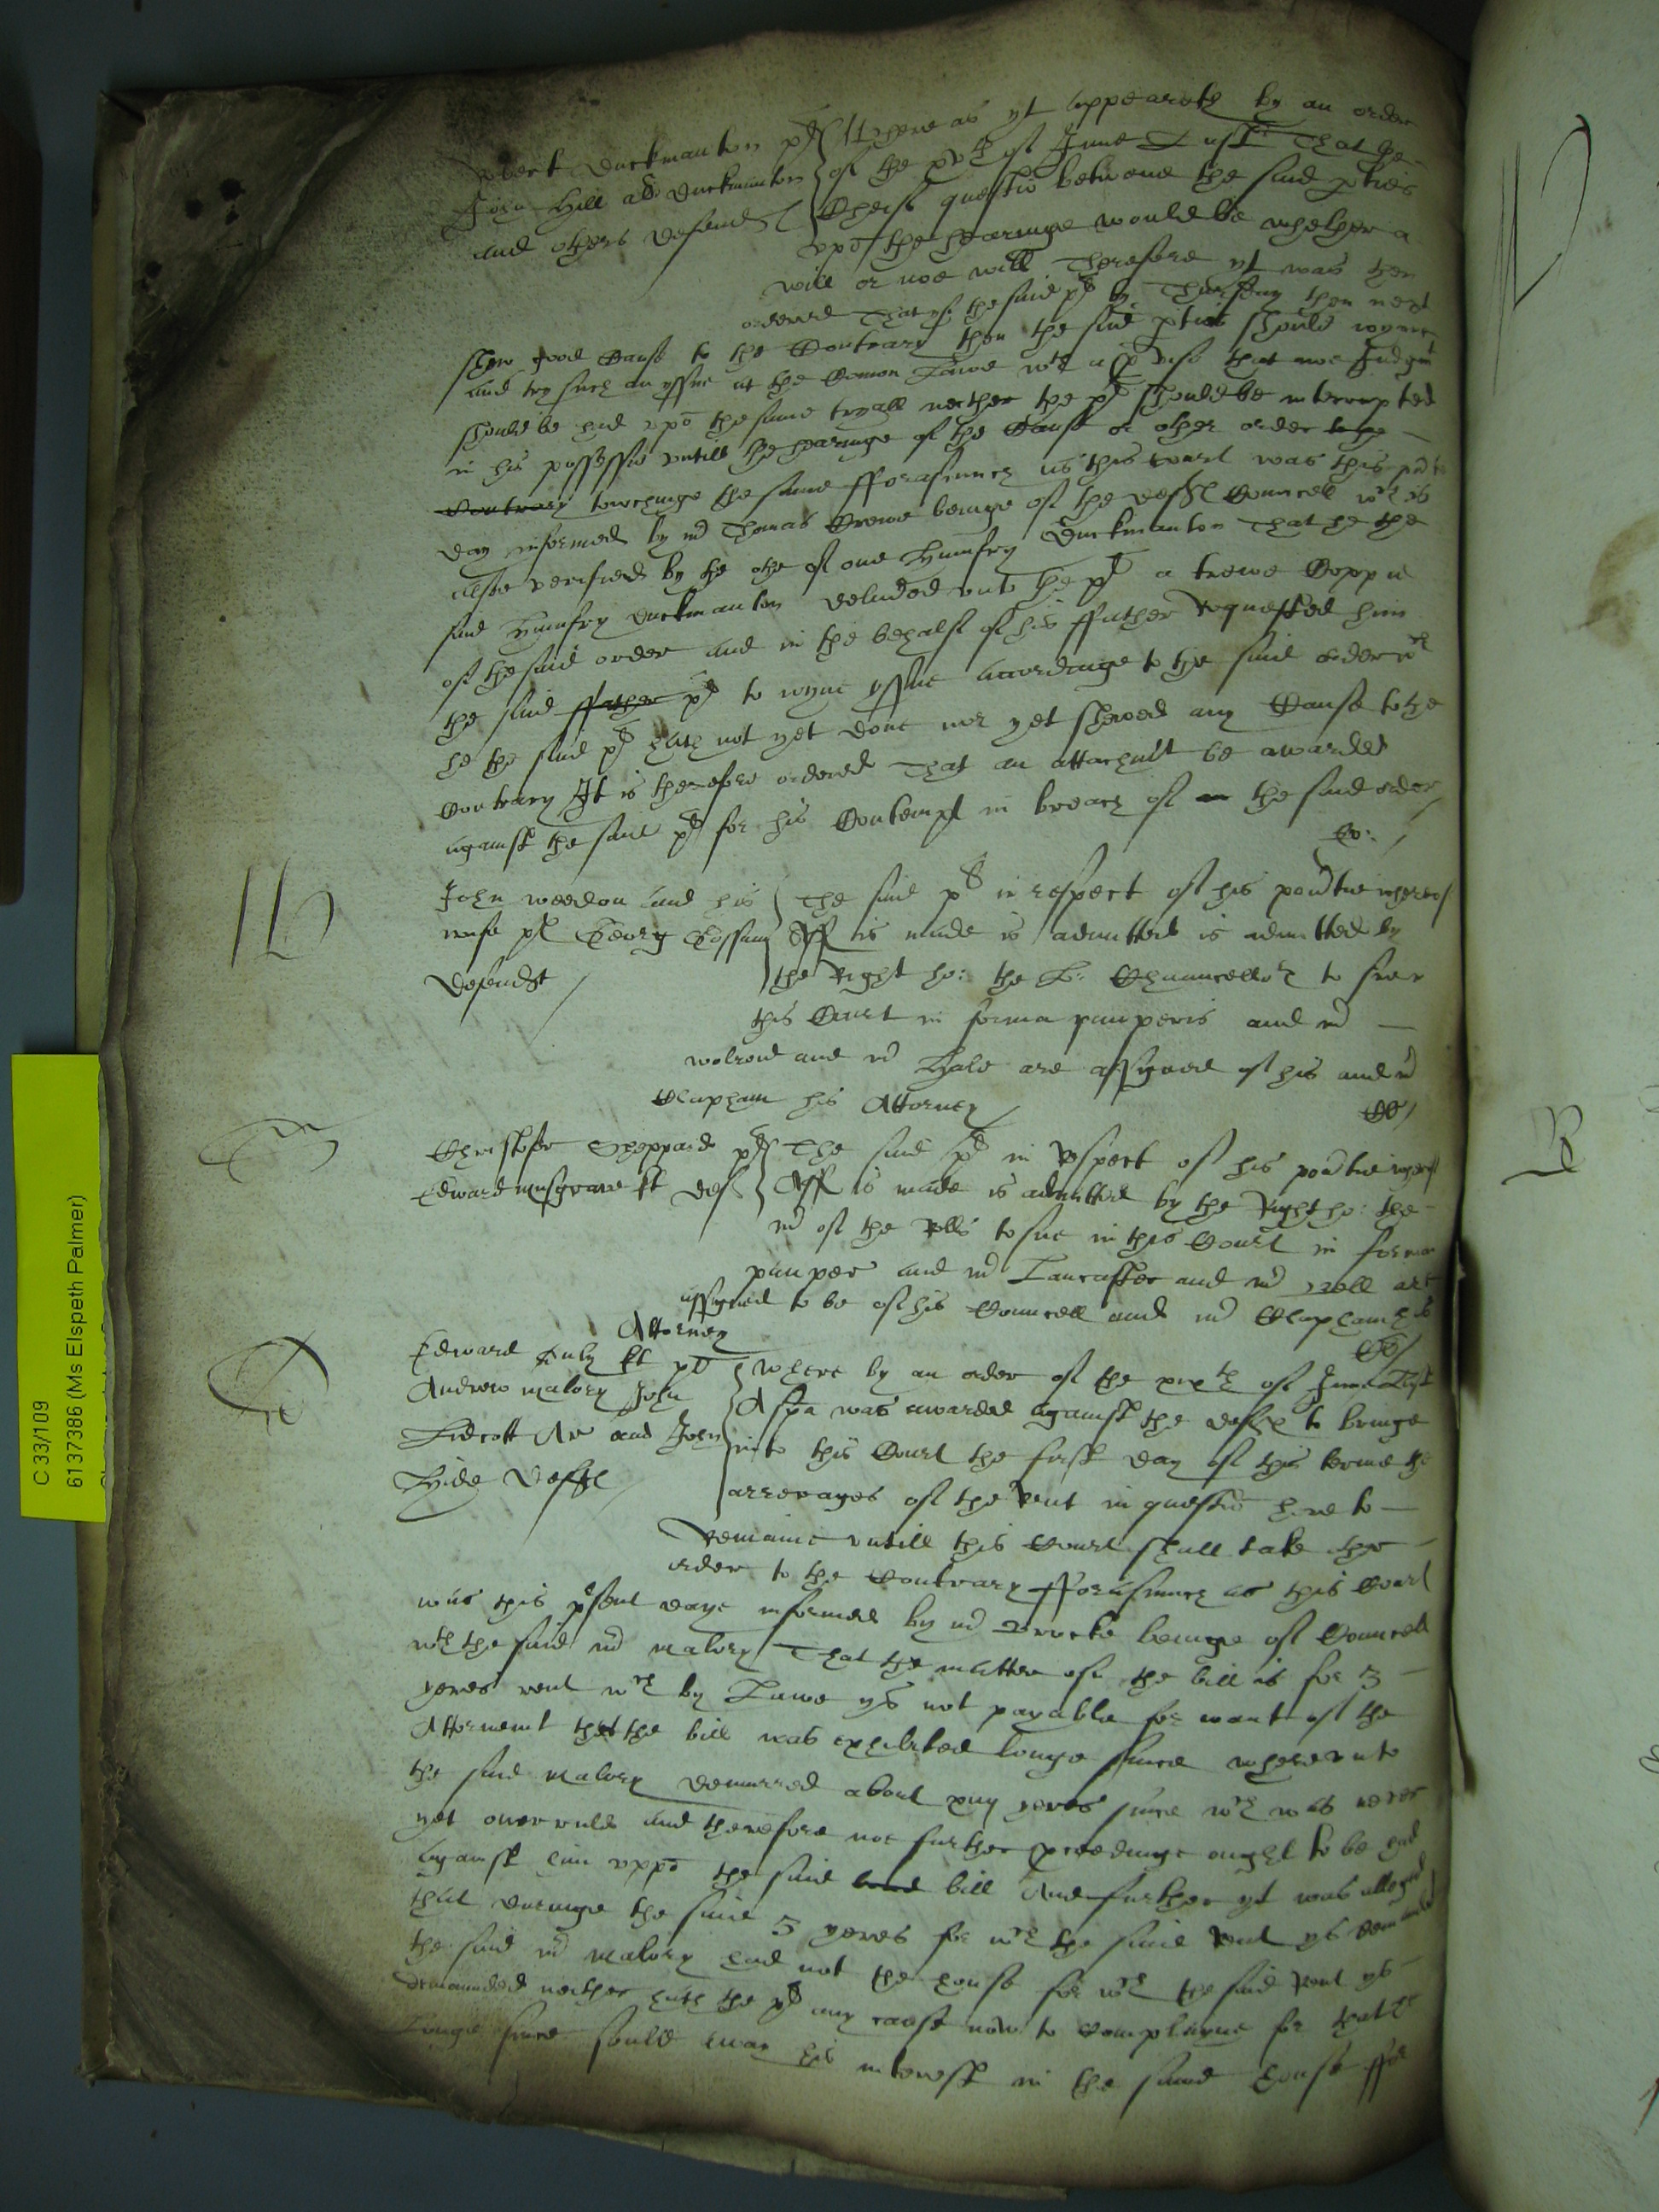 Duckmanton pl Whereas yt appeareth by an order
John Hill als Duckmanton of the xvth of June Last That the
and others defend Cheif questio betwene the said pties
vpo the hearinge would be whether a
will or noe will Therefore yt was then
ordered That yf the said pl by Thursday then next
shew good Cause to the Contrary then the said pties should ioyne
and try such an yssue at the Comon Lawe wth a pviso that noe Judgmt
should be had vpo the same tryall neither the pl should be interrupted
in his possessio vntill the hearinge of the Cause or other order to the
Contrary towchinge the same fforasmuch as this Court was this pnte
day informed by mr Thomas Crewe beinge of the defts Councell wch is
alsoe verified by the othe of one Humfry Duckmanton That he the
said Humfry Duckmanton deliuered vnto the pl a trewe Coppie
of the said order and in the behalf of his ffather Requested him
the said ffather pl to ioyne yssue accordinge to the said order wch
he the said pl hath not yet done nor yet shewed any Cause to the
Contrary It is therefore ordered That an attachmt be awarded
against the said pl for his Contempt in breach of the said order
John Weedon and his The said pl in respect of his povertie whereof
wife pl Georg Aff is made is admitted is admitted by
Defendt the Right ho: the L: Chauncellor to sue in
this Court in forma pauperis and mr
Walrond and mr Hale are assigned of his and mr
Clapham his Attorney
Christofer Sheppard pl The said pl in Respect of his povertie wherof
Edward Musgrave kt def Aff is made is admitted by the Right ho: the
mr of the Rolls to sue in this Court in forma
pauper and mr Lancaster and mr are
assigned to be of his Councell and mr Clapham his
Attorney
Edward kt pl Where by an order of the xixth of June Last
Andrew Malory John A spa was awarded against the defts to bringe
Lidcott Ar and John into this Court the first day of this terme the
Hide Defts arrerages of the Rent in questio here to
Remaine vntill this Court shall take other
order to the Contrary fforasmuch as this Court
was this psent daye informed by mr Brocke beinge of Councell
wth the said mr Malory That the matter of the bill is for 3
yeres rent wch by Lawe ys not payable for want of the
Attornemt that the bill was exhibited longe since wherevnto
the said Malory demurred about xiiij yeres since wch was never
yet overruld and therefore noe further pceedinge ought to be had
against him vppo the said bill And further yt was alleged
that duringe the said 3 yeres for wch the said Rent ys demanded
the said mr Malory had not the house for wch the said Rent ys
demaunded neither hath the pl any cause now to Complayne for that he
Longe since sould away his interest in the same house ffor
C 33/109
6137386 (Ms Elspeth Palmer)